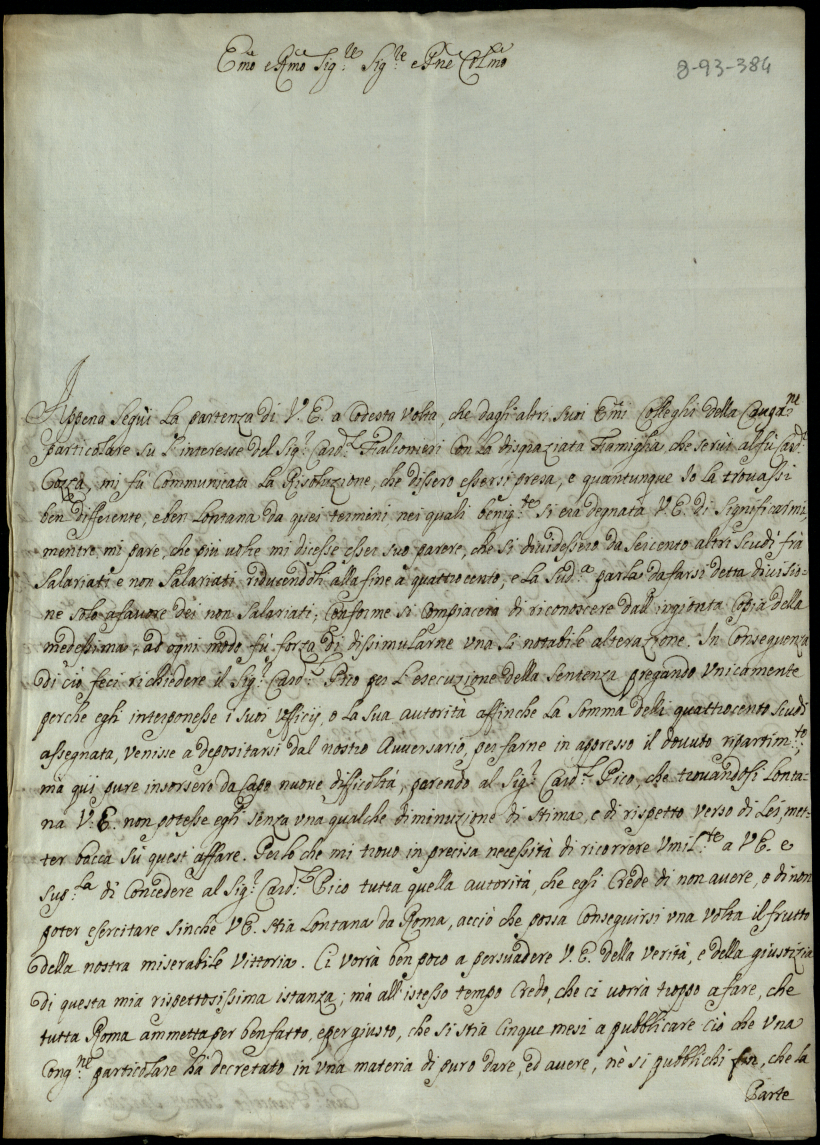 Emo e Rmo Sig.re Sig.re e Pne Colmo
8-93-384
Appena seguì la partenza di V. E. a codesta volta, che dagl'altri suoi Emi Colleghi della Congr.ne
particolare su l'interesse del Sig.r Card.l Falconieri con la disgraziata Famiglia, che servì al fù Card.l
mi fù communicata la Risoluzione, che dissero essersi presa, e quantunque io la trovassi
ben differente, e ben lontana da quei termini nei quali benig.te si era degnata V. E. di significarmi,
mentre mi pare, che più volte mi dicesse esser suo parere, che si dividessero da seicento altri scudi frà
Salariati e non Salariati, riducendoli alla fine a quattrocento, e la Sud.a parla da farsi detta divisio-
ne solo a favore dei non Salariati, conforme si compiacerà di riconoscere dall'ingionta Copia della
medesima, ad ogni modo fù forza di dissimularne una sì notabile alterazione. In conseguenza
di ciò feci richiedere il Sig.r Card.l Pico per l'esecuzione della Sentenza pregando unicamente
perche egli interponesse i suoi ufficij, o la sua autorità affinche la somma delli quattrocento scudi
assegnata, venisse a depositarsi dal nostro Avversario, per farne in appresso il dovuto ripartim.to,
mà quì pure insorsero da capo nuove difficoltà, parendo al Sig.r Card.l Pico, che trovandosi lonta-
na V. E. non potesse egli senza una qualche diminuzione di stima, e di rispetto verso di Lei, met-
ter bocca sù quest'affare. Perloche mi trovo in precisa necessità di ricorrere Umil.te a V. E. e
sup.la di concedere al Sig.r Card.l Pico tutta quella autorità, che egli crede di non avere, e di non
poter esercitare sinche V. E. stia lontana da Roma, acciò che possa conseguirsi una volta il frutto
della nostra miserabile vittoria. Ci vorrà ben poco a persuadere V. E. della verità, e della giustizia
di questa mia rispettosissima istanza; mà all'istesso tempo credo, che ci vorrà troppo a fare, che
tutta Roma ammetta per ben fatto, e per giusto, che si stia cinque mesi a pubblicare ciò che una
Cong.ne particolare hà decretato in una materia di puro dare, ed avere, nè si pubblichi che la
Parte